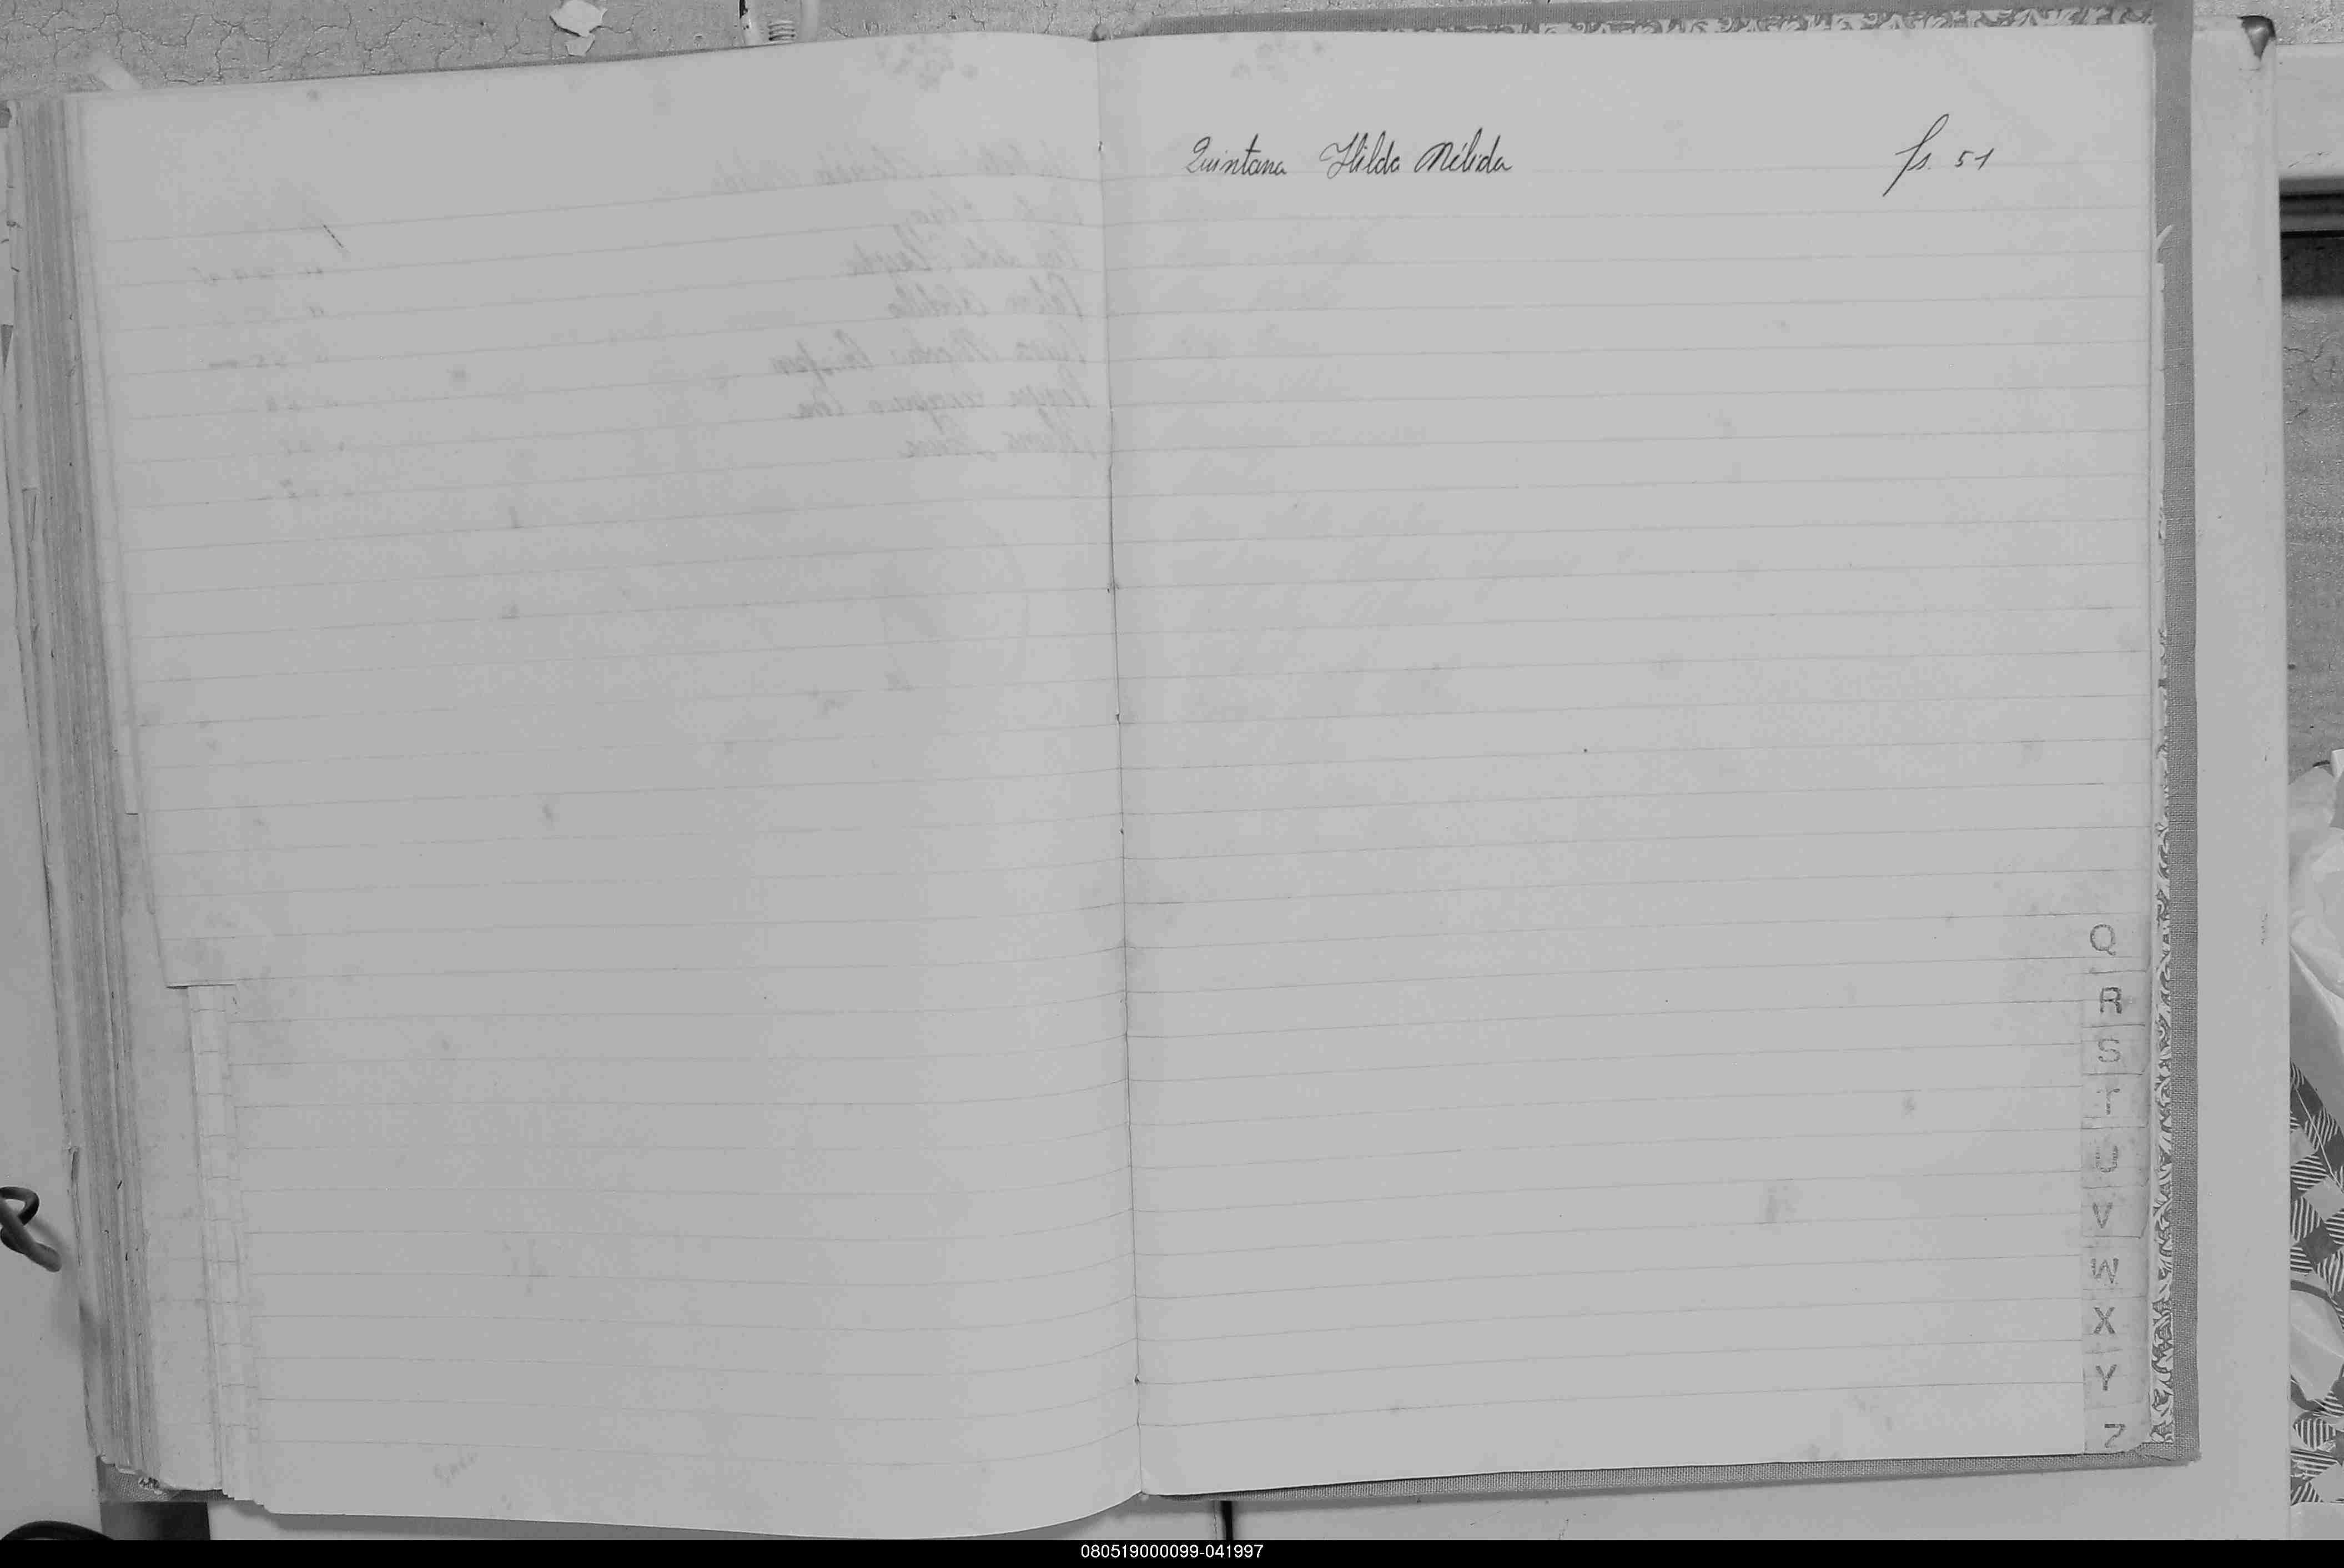 Quintana Hilda Nélida fs. 51
Q
R
S
T
U
V
W
X
Y
Z
080519000099-041997